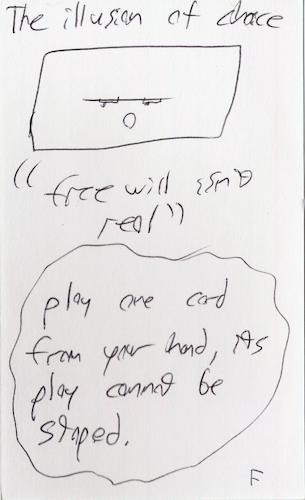 The illusion of choice
"free will isn't
real"
play one card
from your hand, its
play cannot be
stoped.
F